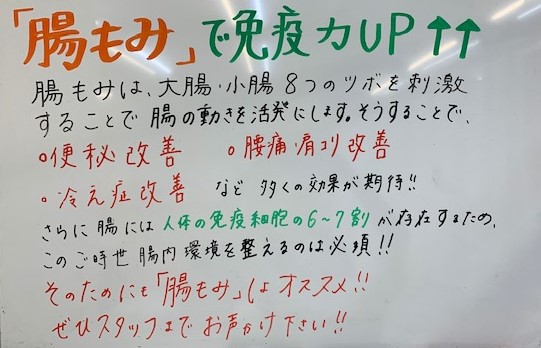 「腸もみ」で免疫力UP↑↑
腸もみは、大腸・小腸8つのツボを刺激
することで腸の動きを活発にします。そうすることで、
•便秘改善 •腰痛・肩コリ改善
•冷え症改善 など多くの効果が期待!!
さらに腸には人体の免疫細胞の6〜7割が存在するため、
このご時世腸内環境を整えるのは必須!!
そのためにも「腸もみ」はオススメ!!
ぜひスタッフまでお声かけ下さい!!